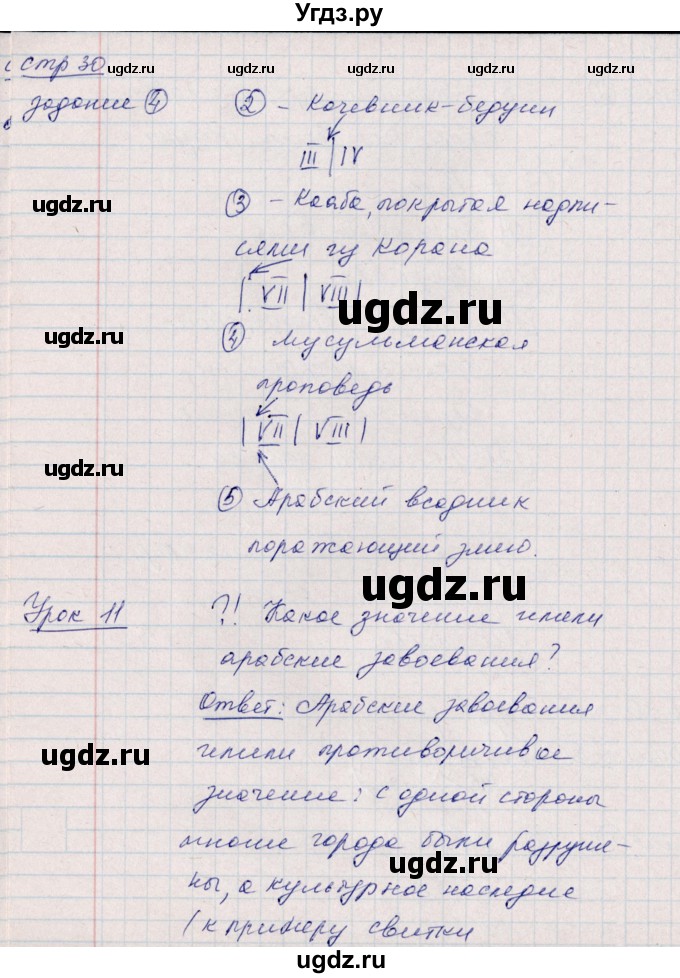 Угдз.ру
стр 30
ugdz.ru ugdz.ru ugdz.ru ugdz.ru
задание ④ ② – Кочевник-бедуин
III | IV
ugdz.ru
③ – Кааба, покрытая надпи-
сями из Корана
| VII | VIII |
ugdz.ru
ugdz.ru
④ мусульманская
проповедь
| VII | VIII |
ugdz.ru
⑤ Арабский всадник
поражающий змию.
ugdz.ru
Урок 11 ?! Какое значение имели
арабские завоевания?
Ответ: Арабские завоевания
ugdz.ru
имели противоречивое
значение: с одной стороны
многие города были разруше-
ugdz.ru
ны, а культурное наследие
(к примеру свитки
ugdz.ru